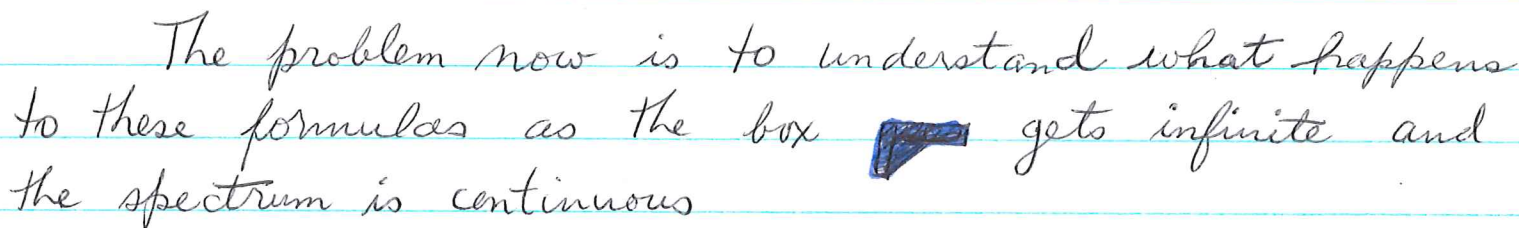 The problem now is to understand what happens
to these formulas as the box gets infinite and
the spectrum is continuous